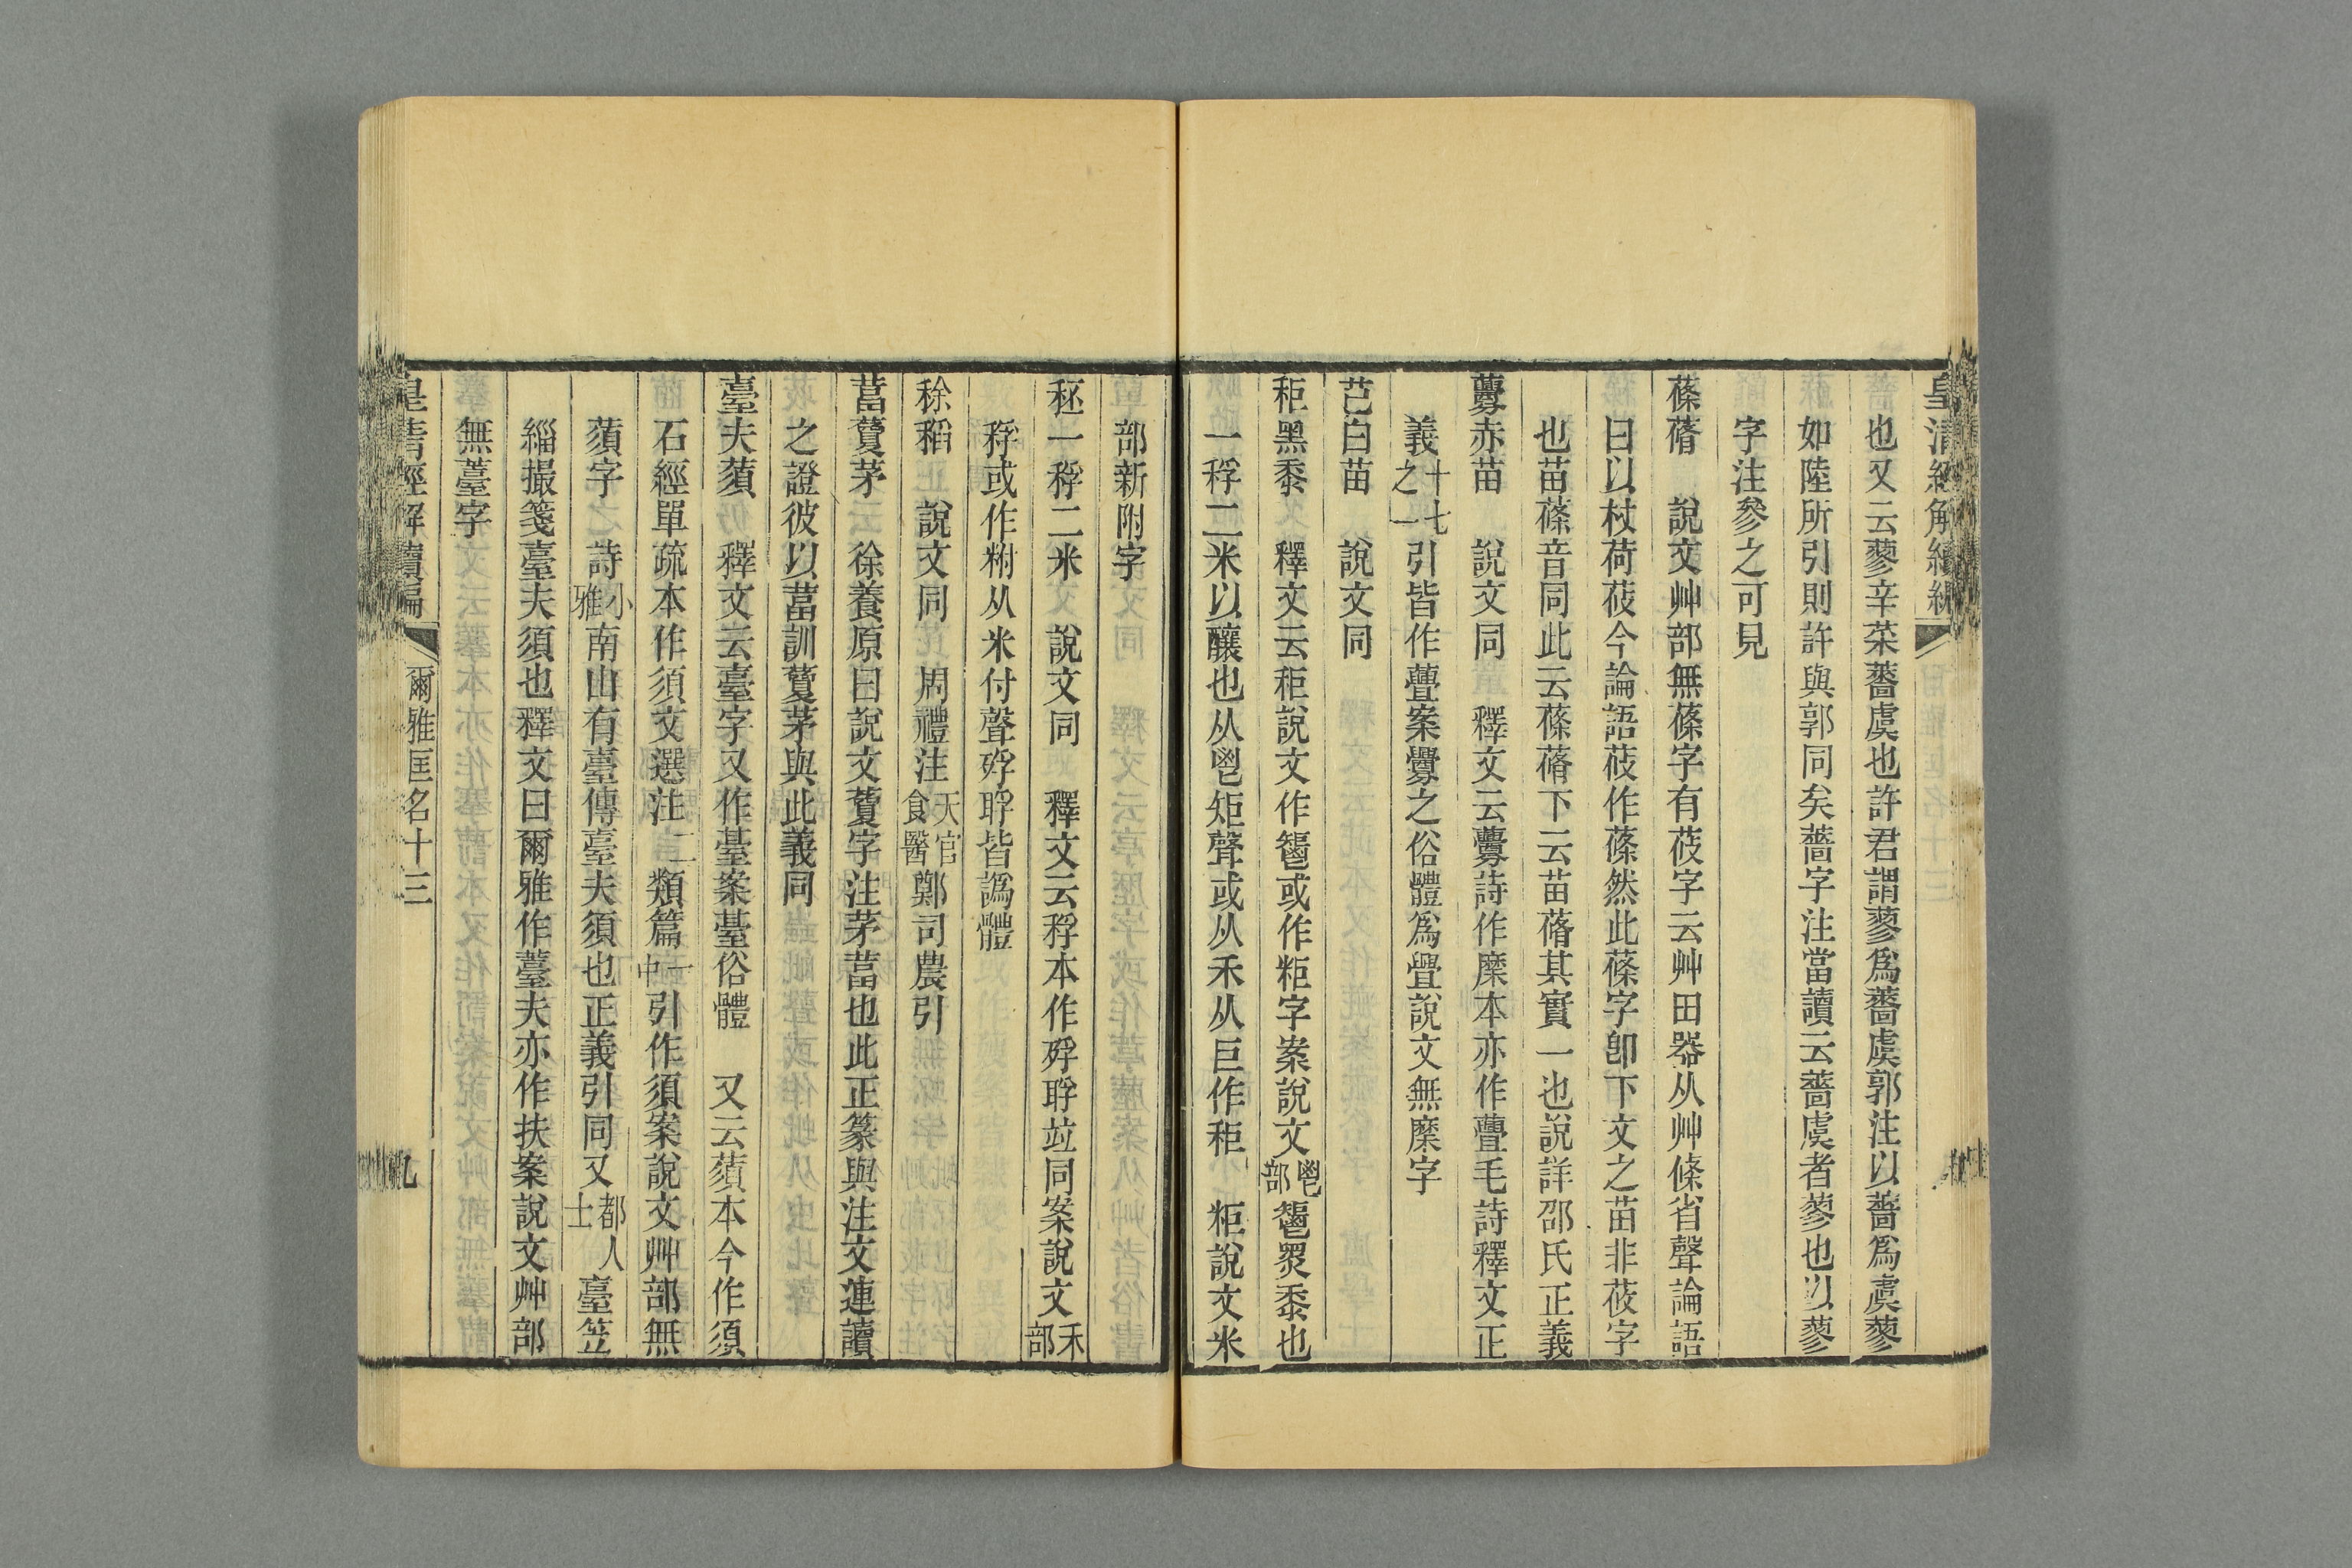 皇清經解續編
也又云蓼辛菜薔虞也許君謂蓼爲薔虞郭注以薔爲虞蓼
如陸所引則許與郭同矣薔字注當讀云薔虞者蓼也以蓼
字注參之可見
蓧蓨 說文艸部無蓧字有莜字云艸田器从艸條省聲論語
曰以杖荷莜今論語莜作蓧然此蓧字卽下文之苗非莜字
也苗蓧音同此云蓧蓨下云苗蓨其實一也說詳邵氏正義
虋赤苗 說文同 釋文云虋詩作穈本亦作亹毛詩釋文正
義十七之一引皆作亹案亹之俗體爲舋說文無穈字
芑白苗 說文同
秬黑黍 釋文云秬說文作𩰤或作粔字案說文鬯部𩰤黑黍也
一稃二米以釀也从鬯矩聲或从禾从巨作秬 粔說文米
部新附字
秠一稃二米 說文同 釋文云稃本作䍖䎔竝同案說文禾部
稃或作粰从米付聲䍖䎔皆譌體
稌稻 說文同 周禮注天官食醫鄭司農引
葍藑茅 徐養原曰說文藑字注茅葍也此正篆與注文連讀
之證彼以葍訓藑茅與此義同
臺夫蕦 釋文云臺字又作薹案薹俗體 又云蕦本今作須
石經單疏本作須文選注二類篇一中引作須案說文艸部無
蕦字 詩小雅南山有臺傳臺夫須也正義引同又都人士臺笠
緇撮箋臺夫須也釋文曰爾雅作薹夫亦作扶案說文艸部
無薹字
皇清經解續編 爾雅匡名十三 九